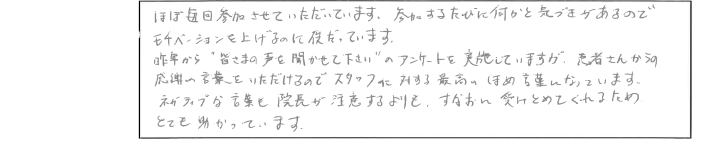 ほぼ毎回参加させていただいています。参加するたびに何かと気づきがあるので
モチベーションを上げるのに役立っています。
昨年から"皆さまの声を聞かせて下さい"のアンケートを実施していますが、患者さんからの
感謝の言葉をいただけるのでスタッフに対する最高のほめ言葉になっています。
ネガティブな言葉も院長が注意するよりも、すなおに受けとめてくれるため
とても助かっています。